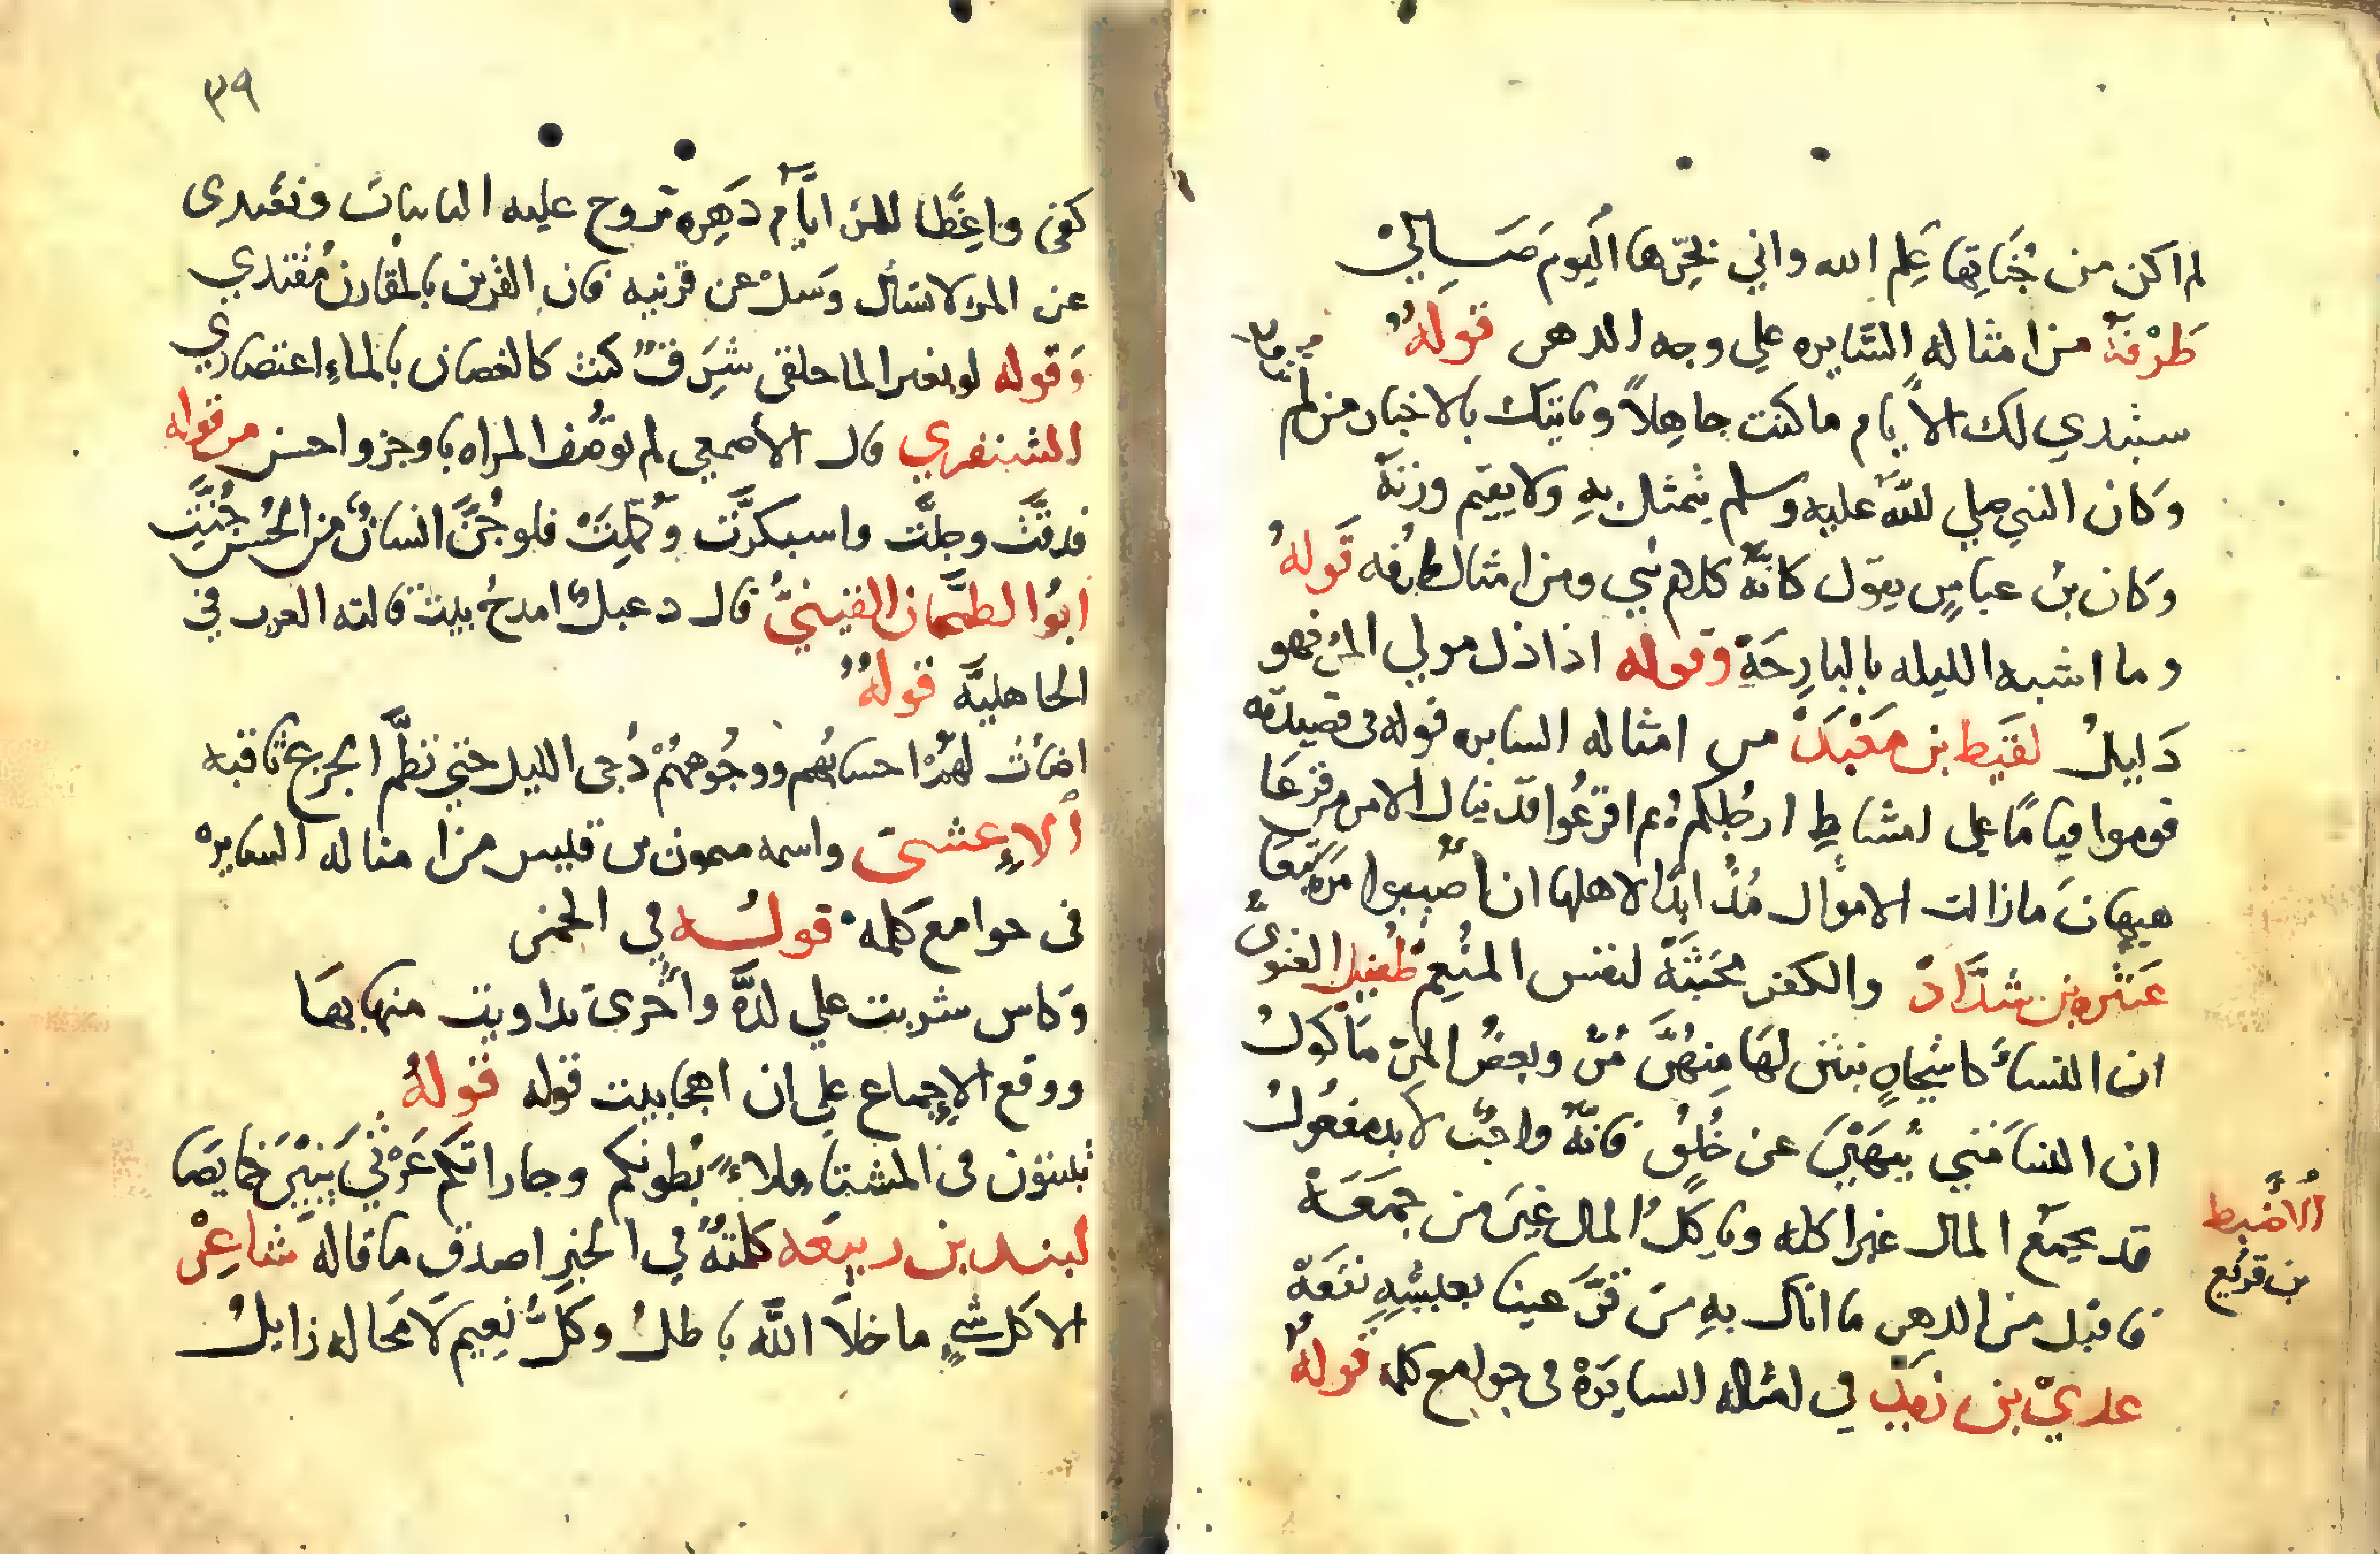 لم اكن من جُناتِها عَلِم الله واني بحَرِّها اليومَ صَــالِيْ
طَرْفَة من امثاله السَّايره علي وجه الدهر قولهُ
ستبدي لك الأيام ما كنت جاهِلاً وياتيك بالاخبار من لم
وكان النبي صلي اللَّه عليه وسلم يتمثل بهِ ولا يقيم وزنَهُ
وكان بن عباسٍ يقول كانَّهُ كلام نبي ومن امثال طرفه قَولهُ
وما اشبه الليله بالبارِحَةِ وقوله اذا ذل مولي المرء فهو
ذَليلُ لقَيط بن مَعْبَد من امثاله السايره قوله في قصيدته
قوموا قيامًا علي امشاطِ ارجُلِكم ثم افزعُوا قد ينال الامر من فزعَا
هيهات ما زالت الاموال مُذ ابدًا لاهلها ان اصيبوا مره تبَعَا
عَنتَره بن شدَّاد والكفر مخبَثَةٌ لنفس المنعِم طفيل الغنوىُّ
ان النساءَ كاشجاهٍ نبتن لهَا مِنهُنَّ مُرٌّ وبعضُ المرّ مَاكولُ
ان النساءَ متي يُنهَيْنَ عن خُلُقٍ فانَّهُ واجبٌ لا بد مفعُولُ
الأضبط
بن قريع
قد يجمَعُ المال غيرُ اكله وياكلُ المال غيرَ من جمَعَهْ
فاقبل من الدهر ما اتاك بهِ مَن قرَّ عينا بعيشِهِ نفَعَهْ
عدي بن زيد في امثاله السايَرَة في جوامع كلمه قولهُ
٣٩
كفى واعِظًا للمرء ايَّام دَهِره تروح عليه النايبات وتغتدى
عن المرء لا تسأل وَسلْ عن قرنيه فان القرين بالمقارن مُقتدي
وَقوله لو بغير الما حلقى شَرِقٌ كنت كالغصان بالماءِ اعتصاري
الشنفري قال الأصمعي لم توصَف المراه باوجز واحسن من قوله
فدقَّتْ وجلَّت واسبكرَّت وَكمِّلَتْ فلو جُنَّ انسانٌ من الحُسن جُنَّتِ
ابُوا لطمَّحان القينيُّ قال دعبلٌ امدحُ بيت قالته العرب في
الجاهليَّه قولهُ
اضَاءَت لهُمْ احسابُهم ووجُوهُهُمْ دُجى الليل حتي نظَّمَ الجزعَ ثاقبه
ألاعشىَ واسمه ميمون بن قيس من امثاله السايره
فى جوامع كلمه قولُـــه في الخمر
وَكاس شربت علي لذَّه وأخرىَ تداويت منها بهَا
ووقع الإجماع علي ان اهجا بيت قوله قولهُ
تبيتون فى المشتا مِلاءً بُطونكم وجاراتكم غَرْثيَ يَبِتْنَ خمايصَا
لبيد بن ربيعَه كلمتهُ في الخبرِ اصدق ما قالهَ شاعِرٌ
الا كل شيٍ ما خلَا اللَّه باطلُ وكلُّ نعِيم لَا مَحاله زايلُ